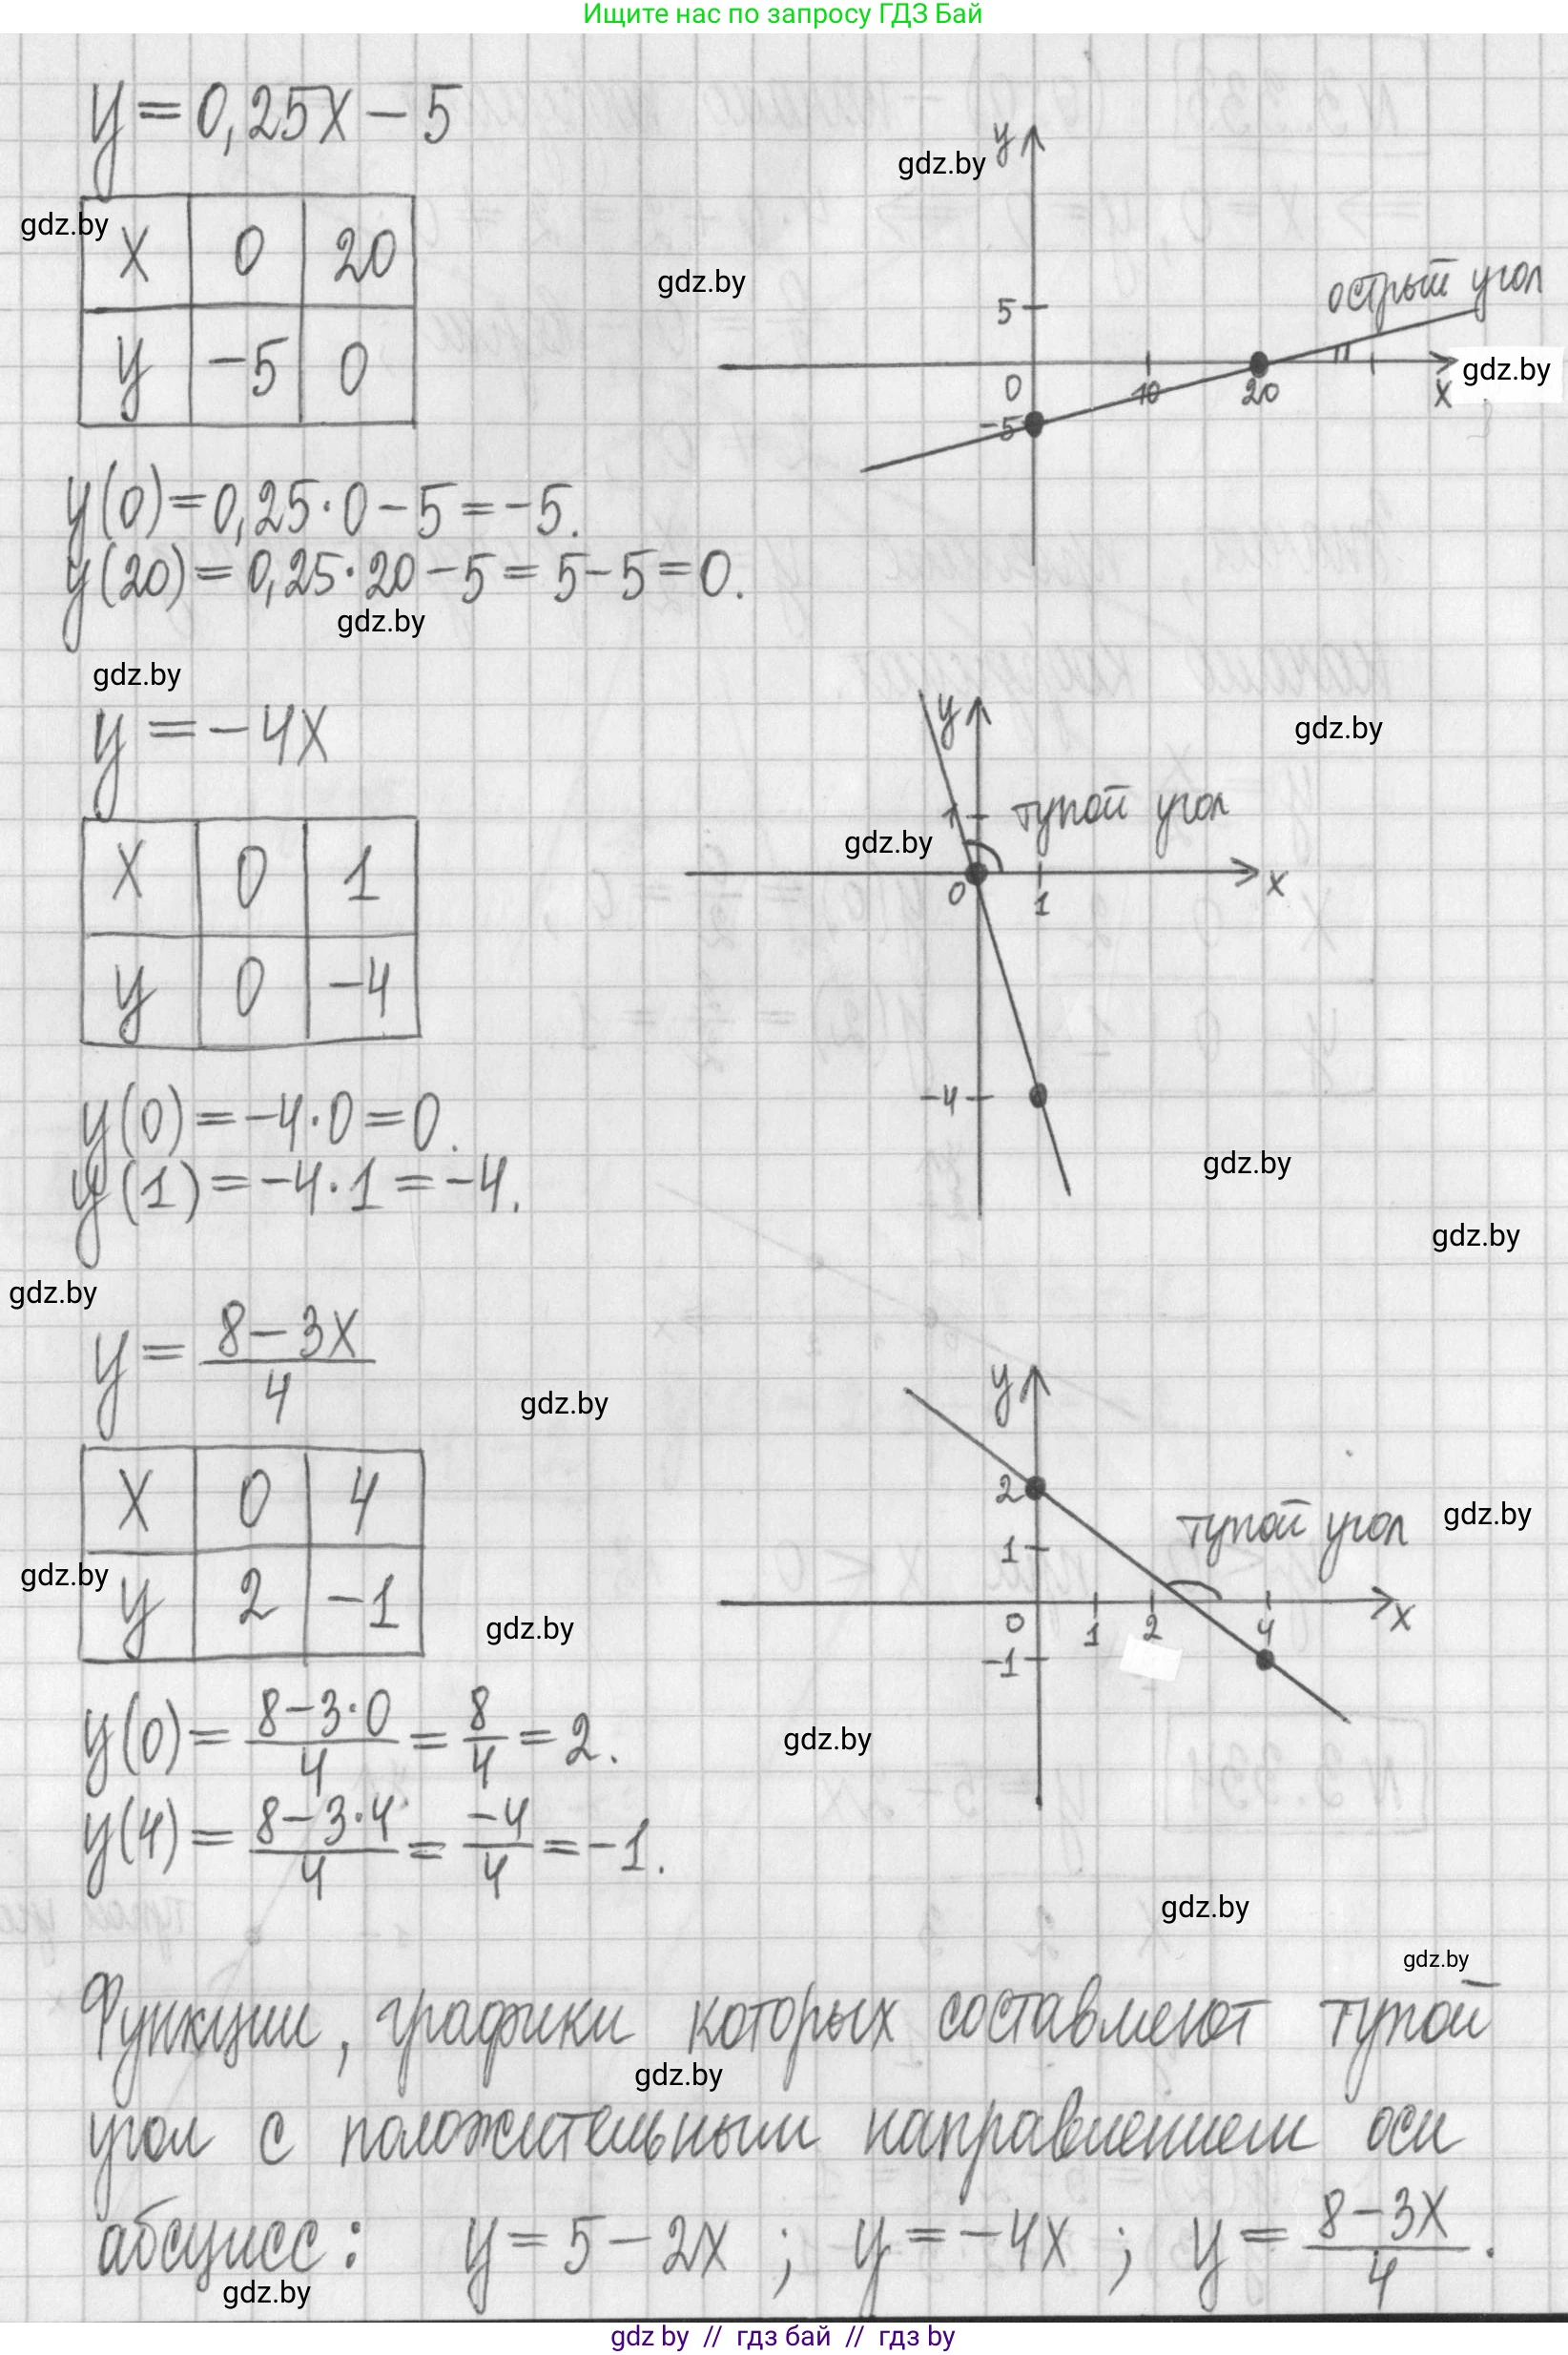 Ищите нас по запросу ГДЗ Бай
y = 0,25x − 5
gdz.by
y
gdz.by
x 0 20
gdz.by
острый угол
5
y −5 0
0 10 20 x
gdz.by
−5
y(0) = 0,25·0 − 5 = −5.
y(20) = 0,25·20 − 5 = 5 − 5 = 0.
gdz.by
gdz.by
y = −4x
y
gdz.by
1 тупой угол
gdz.by
x 0 1
0 1 x
y 0 −4
−4
y(0) = −4·0 = 0.
y(1) = −4·1 = −4.
gdz.by
gdz.by
gdz.by
y = (8 − 3x)/4
gdz.by
y
x 0 4
2
тупой угол
gdz.by
1
gdz.by
y 2 −1
0 1 2 4 x
gdz.by
−1
y(0) = (8 − 3·0)/4 = 8/4 = 2.
gdz.by
y(4) = (8 − 3·4)/4 = −4/4 = −1.
gdz.by
gdz.by
Функции, графики которых составляют тупой
gdz.by
угол с положительным направлением оси
абсцисс: y = 5 − 2x ; y = −4x ; y = (8 − 3x)/4.
gdz.by
gdz by // гдз бай // гдз by